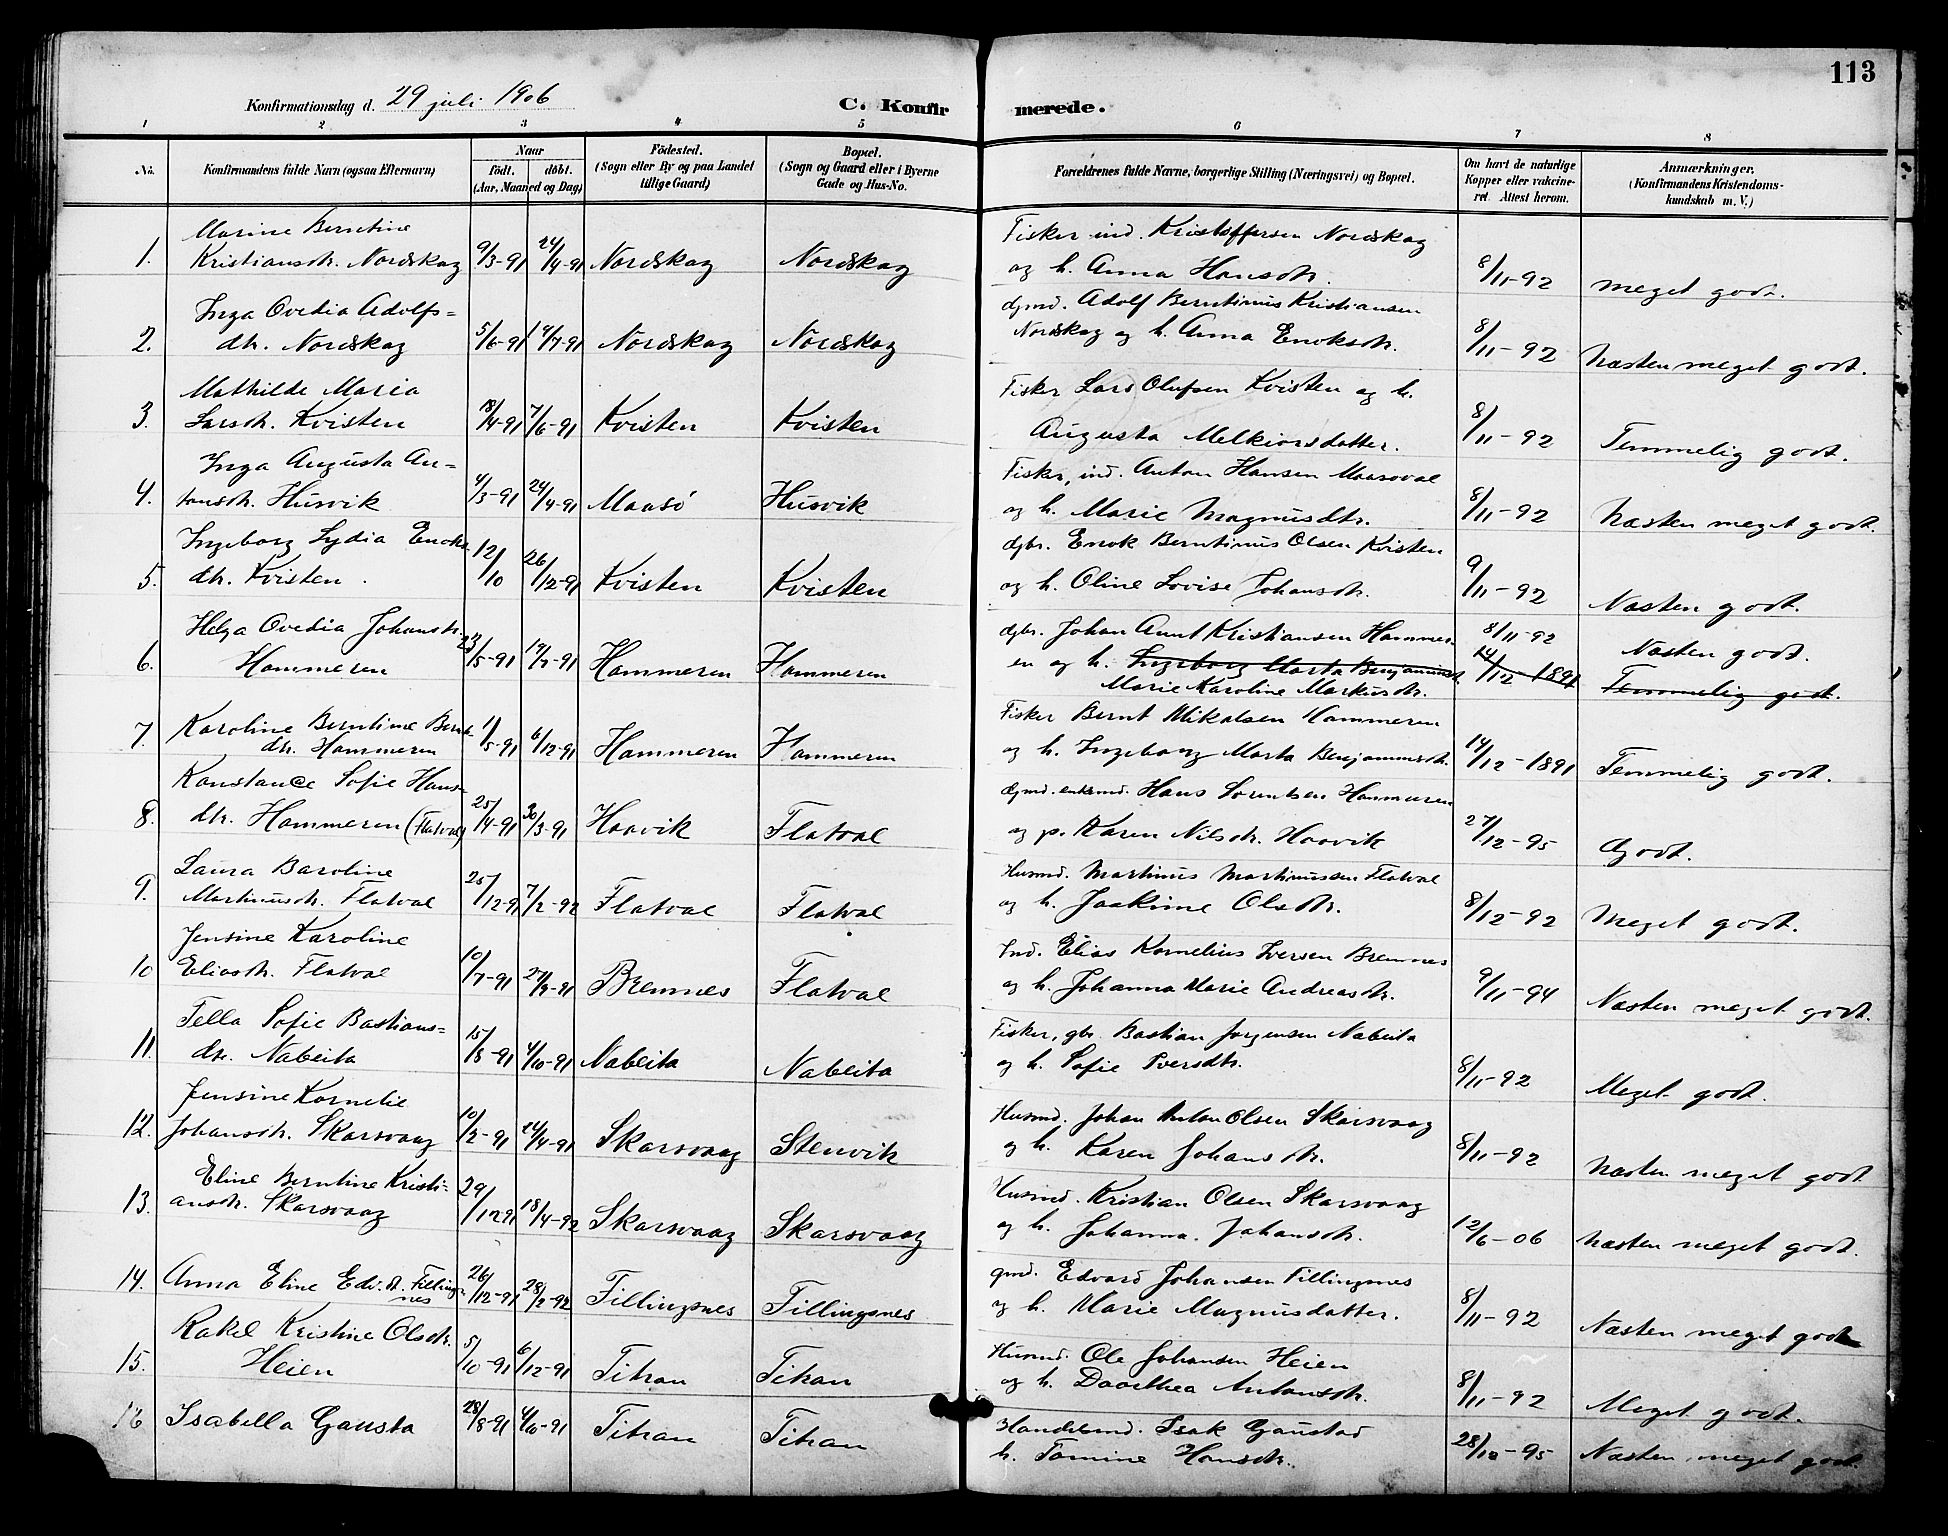 113
Konfirmationsdag d. 29 juli 1906
C. Konfirmerede.
1 2 3 4 5 6 7 8
No.
Konfirmandens fulde Navn (ogsaa Efternavn)
Naar
födt. döbt.
(Aar, Maaned og Dag)
Födested.
(Sogn eller By og paa Landet
tillige Gaard)
Bopæl.
(Sogn og Gaard eller i Byerne
Gade og Hus-No.
Forældrenes fulde Navne, borgerlige Stilling (Næringsvei) og Bopæl.
Om havt de naturlige
Kopper eller vakcine-
ret. Attest herom.
Anmærkninger.
(Konfirmandens Kristendoms-
kundskab m. V.)
Marine Berntine Fisker ind. Kristoffersen Nordskag
1. Kristiansdtr. Nordskag 9/3-91 24/4-91 Nordskag Nordskag og h. Anna Hansdtr. 8/11-92 meget godt.
Inga Ovedia Adolfs= Adolf Berntinus Kristiansen
2. dtr. Nordskag 5/6-91 19/7-91 Nordskag Nordskag Nordskag og h. Anna Enoksdtr. 8/11-92 Næsten meget godt.
Mathilde Maria Fisker Lars Olufsen Kvisten og h.
3. Larsdtr. Kvisten 18/4-91 7/6-91 Kvisten Kvisten Augusta Melkiorsdatter. 8/11-92 Temmelig godt.
Inga Augusta An= Fisker, ind. Anton Hansen Maasoval
4. tonsdtr. Husvik 4/3-91 24/4-91 Maasö Husvik og h. Marie Magnusdtr. 8/11-92 Næsten meget godt.
Ingeborg Lydia Enoks gbr. Enok Berntinus Olsen Kvisten
5. dtr. Kvisten. 12/10 26/12-91 Kvisten Kvisten og h. Oline Lovise Johansdtr. 9/11-92 Næsten godt.
Helga Ovedia Johansdtr. gbr. Johan Arnt Kristiansen Hammer- 8/11-92 Næsten godt.
6. Hammeren 23/5-91 19/7-91 Hammeren Hammeren en og h. Ingeborg Marta Benjaminsdtr. 14/12-1891 Temmelig godt.
Marie Karoline Markusdtr.
Karoline Berntine Bernt- Fisker Bernt Mikalsen Hammeren
7. dtr. Hammeren 1/5-91 6/12-91 Hammeren Hammeren og h. Ingeborg Marta Benjaminsdtr. 14/12-1891 Temmelig godt.
Konstance Sofie Hans- Hans Sorentsen Hammeren
8. dtr. Hammeren (Flatval) 25/4-91 30/3-91 Haavik Flatval og p. Karen Nilsdtr. Haavik 27/12-95 Godt.
Laura Baroline Husmd. Martinus Martinussen Flatval
9. Martinusdtr. Flatval 25/12-91 7/2-92 Flatval Flatval og h. Jaakime Olsdtr. 8/12-92 Meget godt.
Jensine Karoline Ind. Elias Kornelius Iversen Bremnes
10 Eliasdtr. Flatval 10/7-91 27/9-91 Bremnes Flatval og h. Johanna Marie Andreasdtr. 9/11-94 Næsten meget godt.
Tella Sofie Bastians= Fisker, gbr. Bastian Jørgensen Nabeita
11. dtr. Nabeita 15/8-91 4/10-91 Nabeita Nabeita og h. Sofie Iversdtr. 8/11-92 Meget godt.
Jensine Kornelie Husmd. Johan Anton Olsen Skarsvaag
12. Johansdtr. Skarsvaag 10/2-91 24/4-91 Skarsvaag Stenvik og h. Karen Johansdtr. 8/11-92 Næsten meget godt
Eline Berntine Kristi= Husmd. Kristian Olsen Skarsvaag
13. ansdtr. Skarsvaag 29/12 91 18/4-92 Skarsvaag Skarsvaag og h. Johanna. Johansdtr. 12/6-06 Næsten meget godt.
14. Anna Eline Edv.dt. Fillings- gmd. Edvard Johansen Fillingsnes
nes 26/12-91 28/2-92 Fillingsnes Fillingsnes og h. Marie Magnusdatter. 8/11-92 Næsten meget godt
Rakel Kristine Olsdtr. Husmd. Ole Johansen Heien
15. Heien 5/10-91 6/12-91 Titran Titran og h. Dorthea Antonsdtr. 8/11-92 Meget godt.
16 Isabella Gausta 28/8-91 4/10-91 Titran Titran Handelsmd. Isak Gaustad
h. Tomine Hansdtr. 28/10-95 Næsten meget godt.